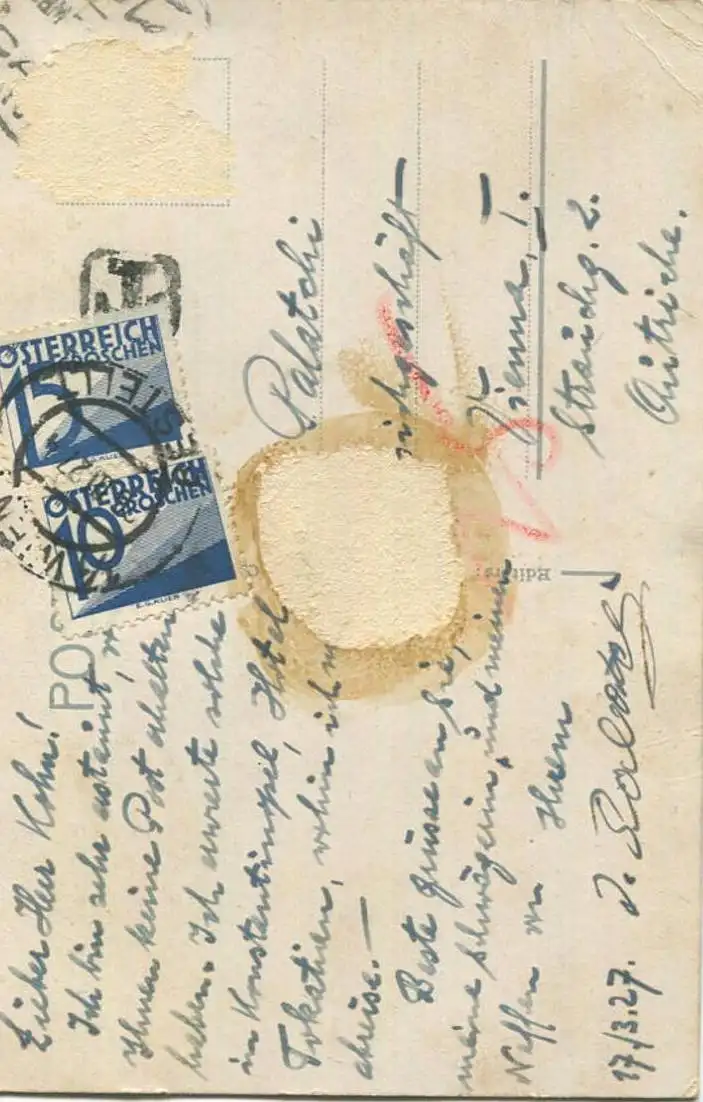 Lieber Herr Kohn!
Ich bin sehr erstaunt,
Ihnen keine Post erhalten
haben. Ich erwarte solche
in Konstantinopel, Hotel
Tokatlian, wohin ich
abreise.—
Beste Grüsse an Sie,
meine Schwägerin, und meinen
Neffen von Ihrem
17./3.27. J.
Palatchi
Vienna, I.
Strauchg. 2.
Autriche.
ÖSTERREICH
GROSCHEN
15
ÖSTERREICH
10 GROSCHEN
T
WIEN
PO
Editeur: